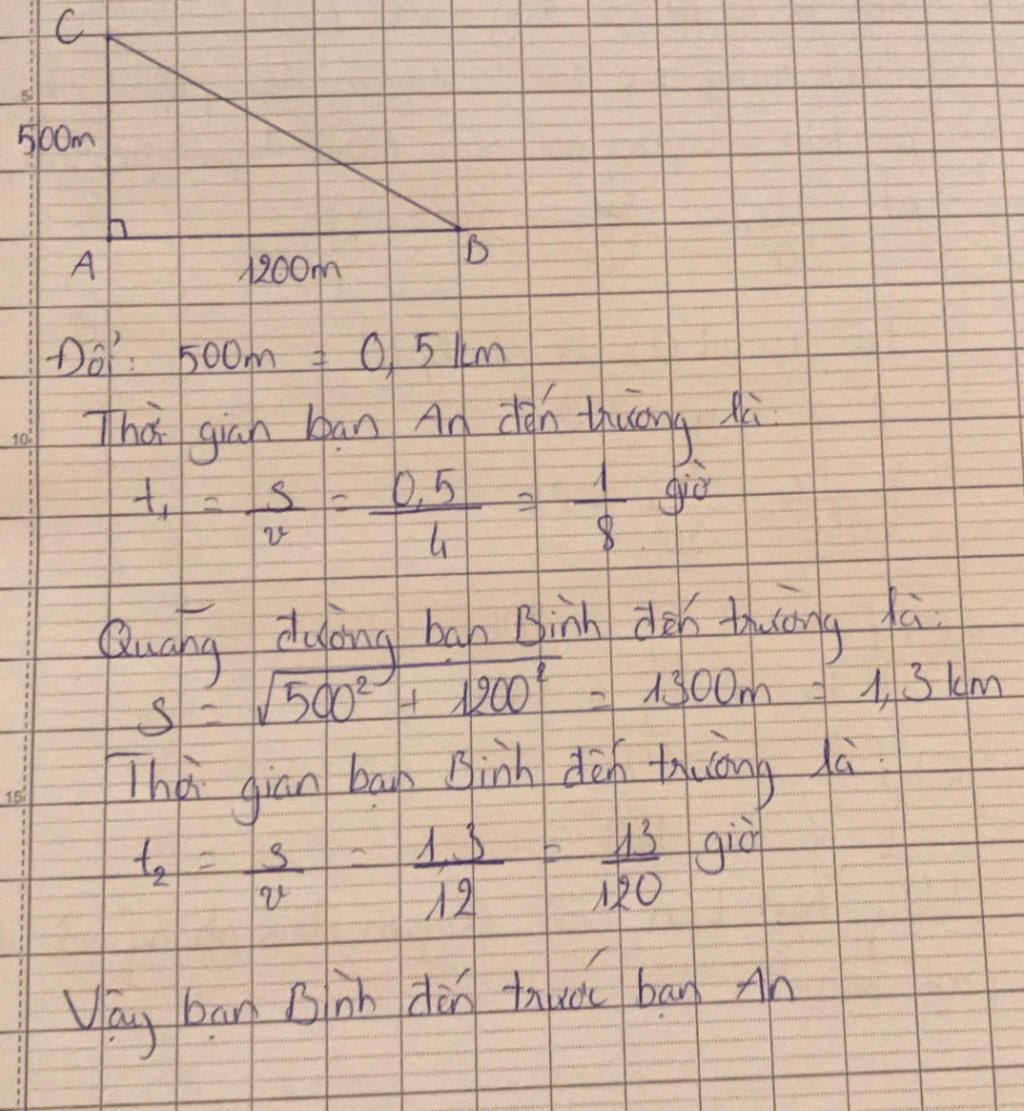 C
5
500m
A
1200m
B
Đổi: 500m = 0,5 km
10
Thời gian bạn An đến trường là:
t₁ = s/v = 0,5/4 = 1/8 giờ
Quãng đường bạn Bình đến trường là:
s = √(500² + 1200²) = 1300m = 1,3 km
Thời gian bạn Bình đến trường là:
15
t₂ = s/v = 1,3/12 = 13/120 giờ
Vậy bạn Bình đến trước bạn An